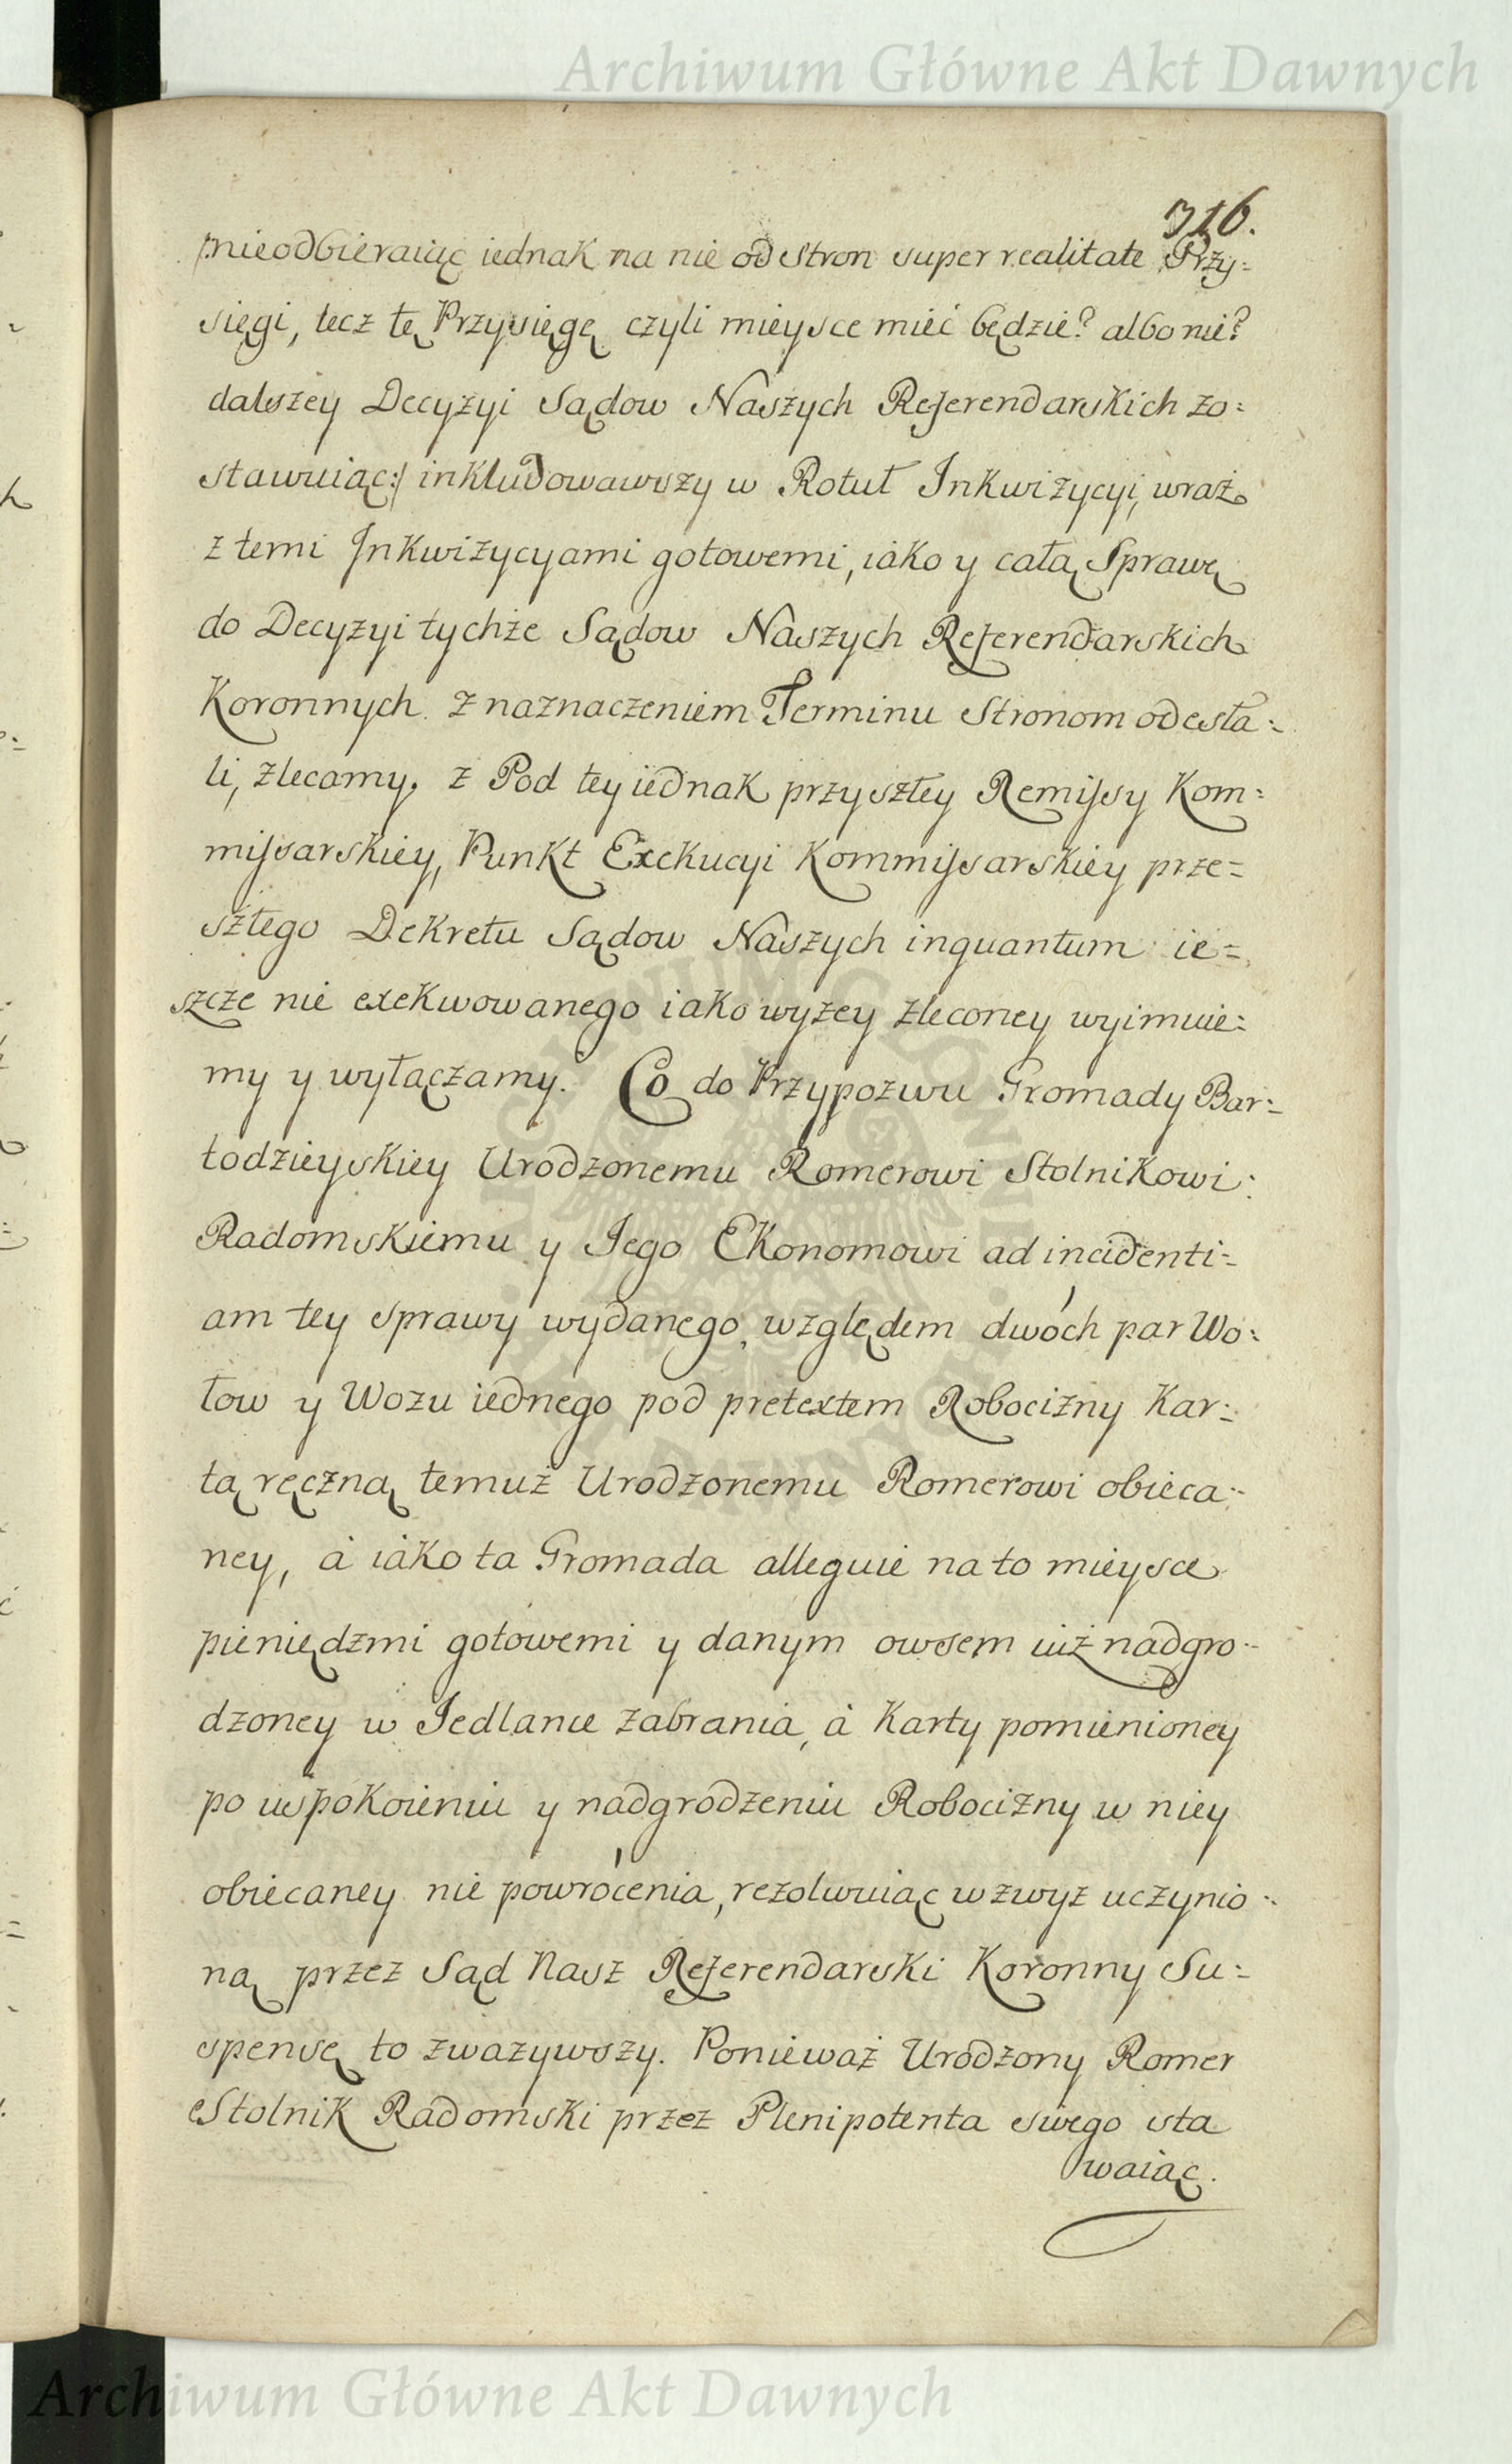 Archiwum Główne Akt Dawnych
316.
/:nieodbieraiąc iednak na nie od Stron super realitate Przy=
sięgi, lecz tę Przysięgę czyli mieysce mieć będzie? albo nie?
dalszey Decyzyi Sądow Naszych Referendarskich zo=
stawuiąc:/ inkludowawszy w Rotuł Inkwizycyi, wraz
z temi Inkwizycyami gotowemi, iako y całą Sprawę
do Decyzyi tychże Sądow Naszych Referendarskich
Koronnych z naznaczeniem Terminu Stronom odesła=
li, zlecamy. z Pod tey iednak przyszłey Remissy Kom=
missarskiey, Punkt Exekucyi Kommissarskiey prze=
szłego Dekretu Sądow Naszych inquantum ie=
szcze nie exekwowanego iako wyżey zleconey wyimuie=
my y wyłączamy. Co do Przypozwu Gromady Bar=
łodzieyskiey Urodzonemu Romerowi Stolnikowi
Radomskiemu y Jego Ekonomowi ad incidenti=
am tey sprawy wydanego, względem dwóch par Wo=
łow y Wozu iednego pod pretextem Robocizny Kar=
tą ręczną temuż Urodzonemu Romerowi obieca=
ney, á iáko ta Gromada alleguie na to mieysce
pieniędzmi gotowemi y danym owsem iuż nadgro=
dzoney w Jedlance zabrania, á Karty pomienioney
po uspokoieniu y nadgrodzeniu Robocizny w niey
obiecaney nie powrócenia, rezolwuiąc wzwyż uczynio=
ną przez Sąd Nasz Referendarski Koronny Su=
spensę to zwazywszy. Ponieważ Urodzony Romer
Stolnik Radomski przez Plenipotenta swego sta
waiąc.
Archiwum Główne Akt Dawnych